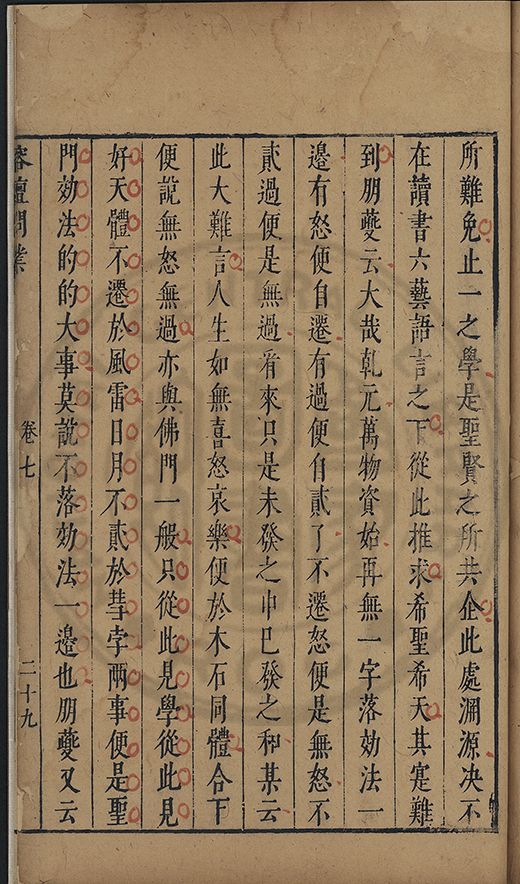 所難免止一之學是聖賢之所共企此處淵源决不
在讀書六藝語言之下從此推求希聖希天其寔難
到朋夔云大哉乾元萬物資始再無一字落効法一
邉有怒便自遷有過便自貳了不遷怒便是無怒不
貳過便是無過看來只是未發之中已發之和某云
此大難言人生如無喜怒哀樂便於木石同體合下
便說無怒無過亦與佛門一般只從此見學從此見
好天體不遷於風雷日月不貳於彗孛兩事便是聖
門効法的的大事莫說不落効法一邉也朋夔又云
榕壇問業
卷七
二十九